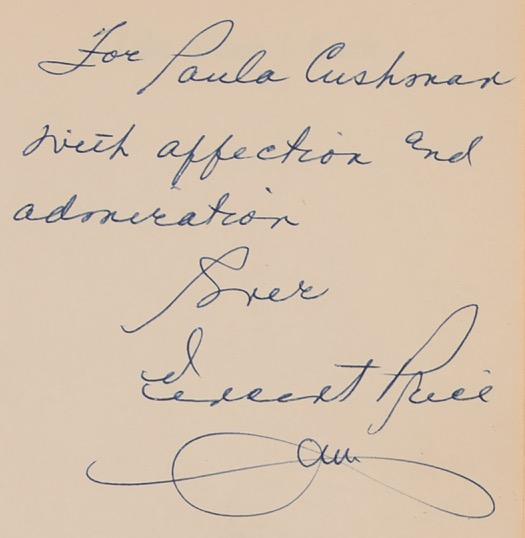 For Paula Cushman
with affection and
admiration
Ever
Vincent Price